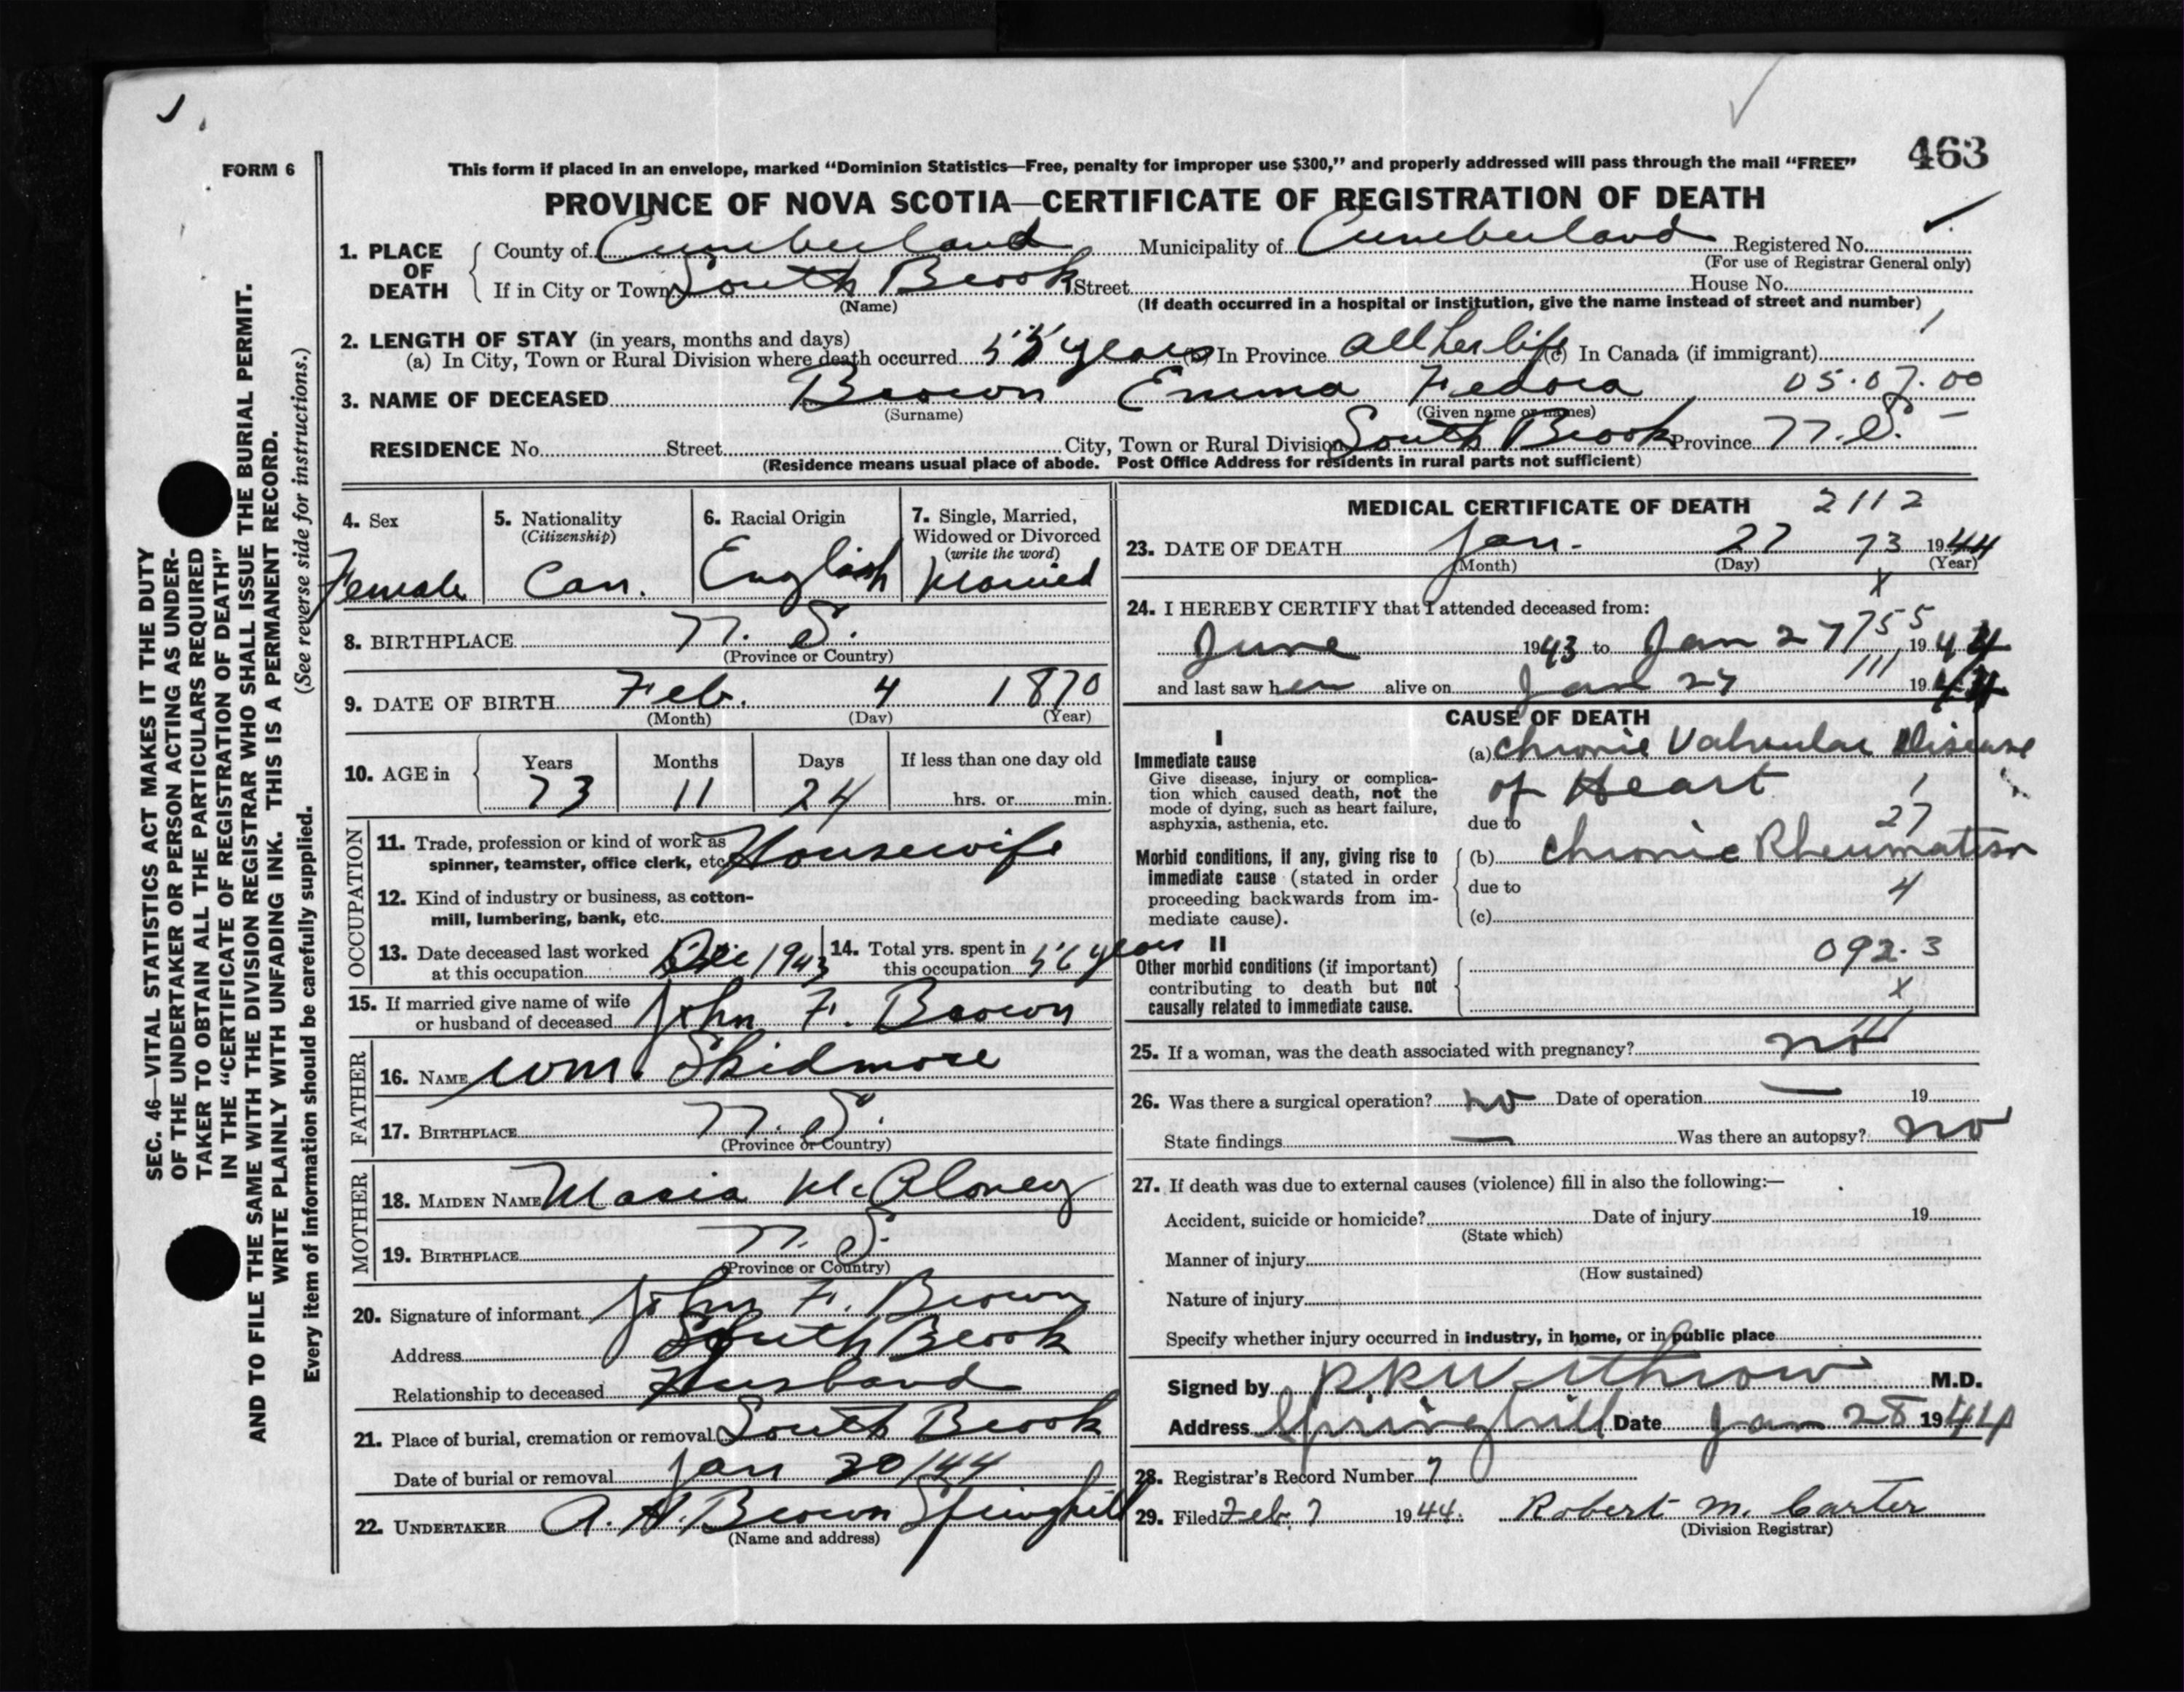 463
FORM 6
This form if placed in an envelope, marked “Dominion Statistics—Free, penalty for improper use $300,” and properly addressed will pass through the mail “FREE”
PROVINCE OF NOVA SCOTIA—CERTIFICATE OF REGISTRATION OF DEATH
1. PLACE OF DEATH County of Cumberland Municipality of Cumberland Registered No.
(For use of Registrar General only)
If in City or Town South Brook Street House No.
(Name) (If death occurred in a hospital or institution, give the name instead of street and number)
2. LENGTH OF STAY (in years, months and days)
(a) In City, Town or Rural Division where death occurred 55 years (b) In Province all her life (c) In Canada (if immigrant)
3. NAME OF DECEASED Brown Emma Fedora 05.07.00
(Surname) (Given name or names)
RESIDENCE No. Street City, Town or Rural Division South Brook Province N.S.
(Residence means usual place of abode. Post Office Address for residents in rural parts not sufficient)
4. Sex
Female
5. Nationality
(Citizenship)
Can.
6. Racial Origin
English
7. Single, Married,
Widowed or Divorced
(write the word)
Married
8. BIRTHPLACE N. S.
(Province or Country)
9. DATE OF BIRTH Feb. 4 1870
(Month) (Day) (Year)
10. AGE in Years Months Days If less than one day old
73 11 24 hrs. or min.
OCCUPATION
11. Trade, profession or kind of work as
spinner, teamster, office clerk, etc. Housewife
12. Kind of industry or business, as cotton-
mill, lumbering, bank, etc.
13. Date deceased last worked
at this occupation Dec 1943
14. Total yrs. spent in
this occupation 56 years
15. If married give name of wife
or husband of deceased John F. Brown
FATHER
16. NAME Wm. Skidmore
17. BIRTHPLACE N. S.
(Province or Country)
MOTHER
18. MAIDEN NAME Maria McAloney
19. BIRTHPLACE N. S.
(Province or Country)
20. Signature of informant John F. Brown
Address South Brook
Relationship to deceased Husband
21. Place of burial, cremation or removal South Brook
Date of burial or removal Jan 30/44
22. UNDERTAKER A. H. Brown Springhill
(Name and address)
MEDICAL CERTIFICATE OF DEATH 2112
23. DATE OF DEATH Jan. 27 73 1944
(Month) (Day) (Year)
X
24. I HEREBY CERTIFY that I attended deceased from:
755
June 1943 to Jan 27 1944
111
and last saw her alive on Jan 27 1944
CAUSE OF DEATH
I
Immediate cause
Give disease, injury or complica-
tion which caused death, not the
mode of dying, such as heart failure,
asphyxia, asthenia, etc.
(a) Chronic Valvular Disease
of Heart 1
27
due to
Morbid conditions, if any, giving rise to
immediate cause (stated in order
proceeding backwards from im-
mediate cause).
(b) Chronic Rheumatism
due to 4
(c)
II
Other morbid conditions (if important)
contributing to death but not
causally related to immediate cause.
092.3
X
25. If a woman, was the death associated with pregnancy?
26. Was there a surgical operation? no Date of operation — 19
State findings — Was there an autopsy? no
27. If death was due to external causes (violence) fill in also the following:—
Accident, suicide or homicide? Date of injury 19
(State which)
Manner of injury
(How sustained)
Nature of injury
Specify whether injury occurred in industry, in home, or in public place
Signed by Withrow M.D.
Address Springhill Date Jan 28 1944
28. Registrar's Record Number 7
29. Filed Feb. 7 1944. Robert M. Carter
(Division Registrar)
SEC. 46—VITAL STATISTICS ACT MAKES IT THE DUTY
OF THE UNDERTAKER OR PERSON ACTING AS UNDER-
TAKER TO OBTAIN ALL THE PARTICULARS REQUIRED
IN THE “CERTIFICATE OF REGISTRATION OF DEATH”
AND TO FILE THE SAME WITH THE DIVISION REGISTRAR WHO SHALL ISSUE THE BURIAL PERMIT.
WRITE PLAINLY WITH UNFADING INK. THIS IS A PERMANENT RECORD.
Every item of information should be carefully supplied. (See reverse side for instructions.)